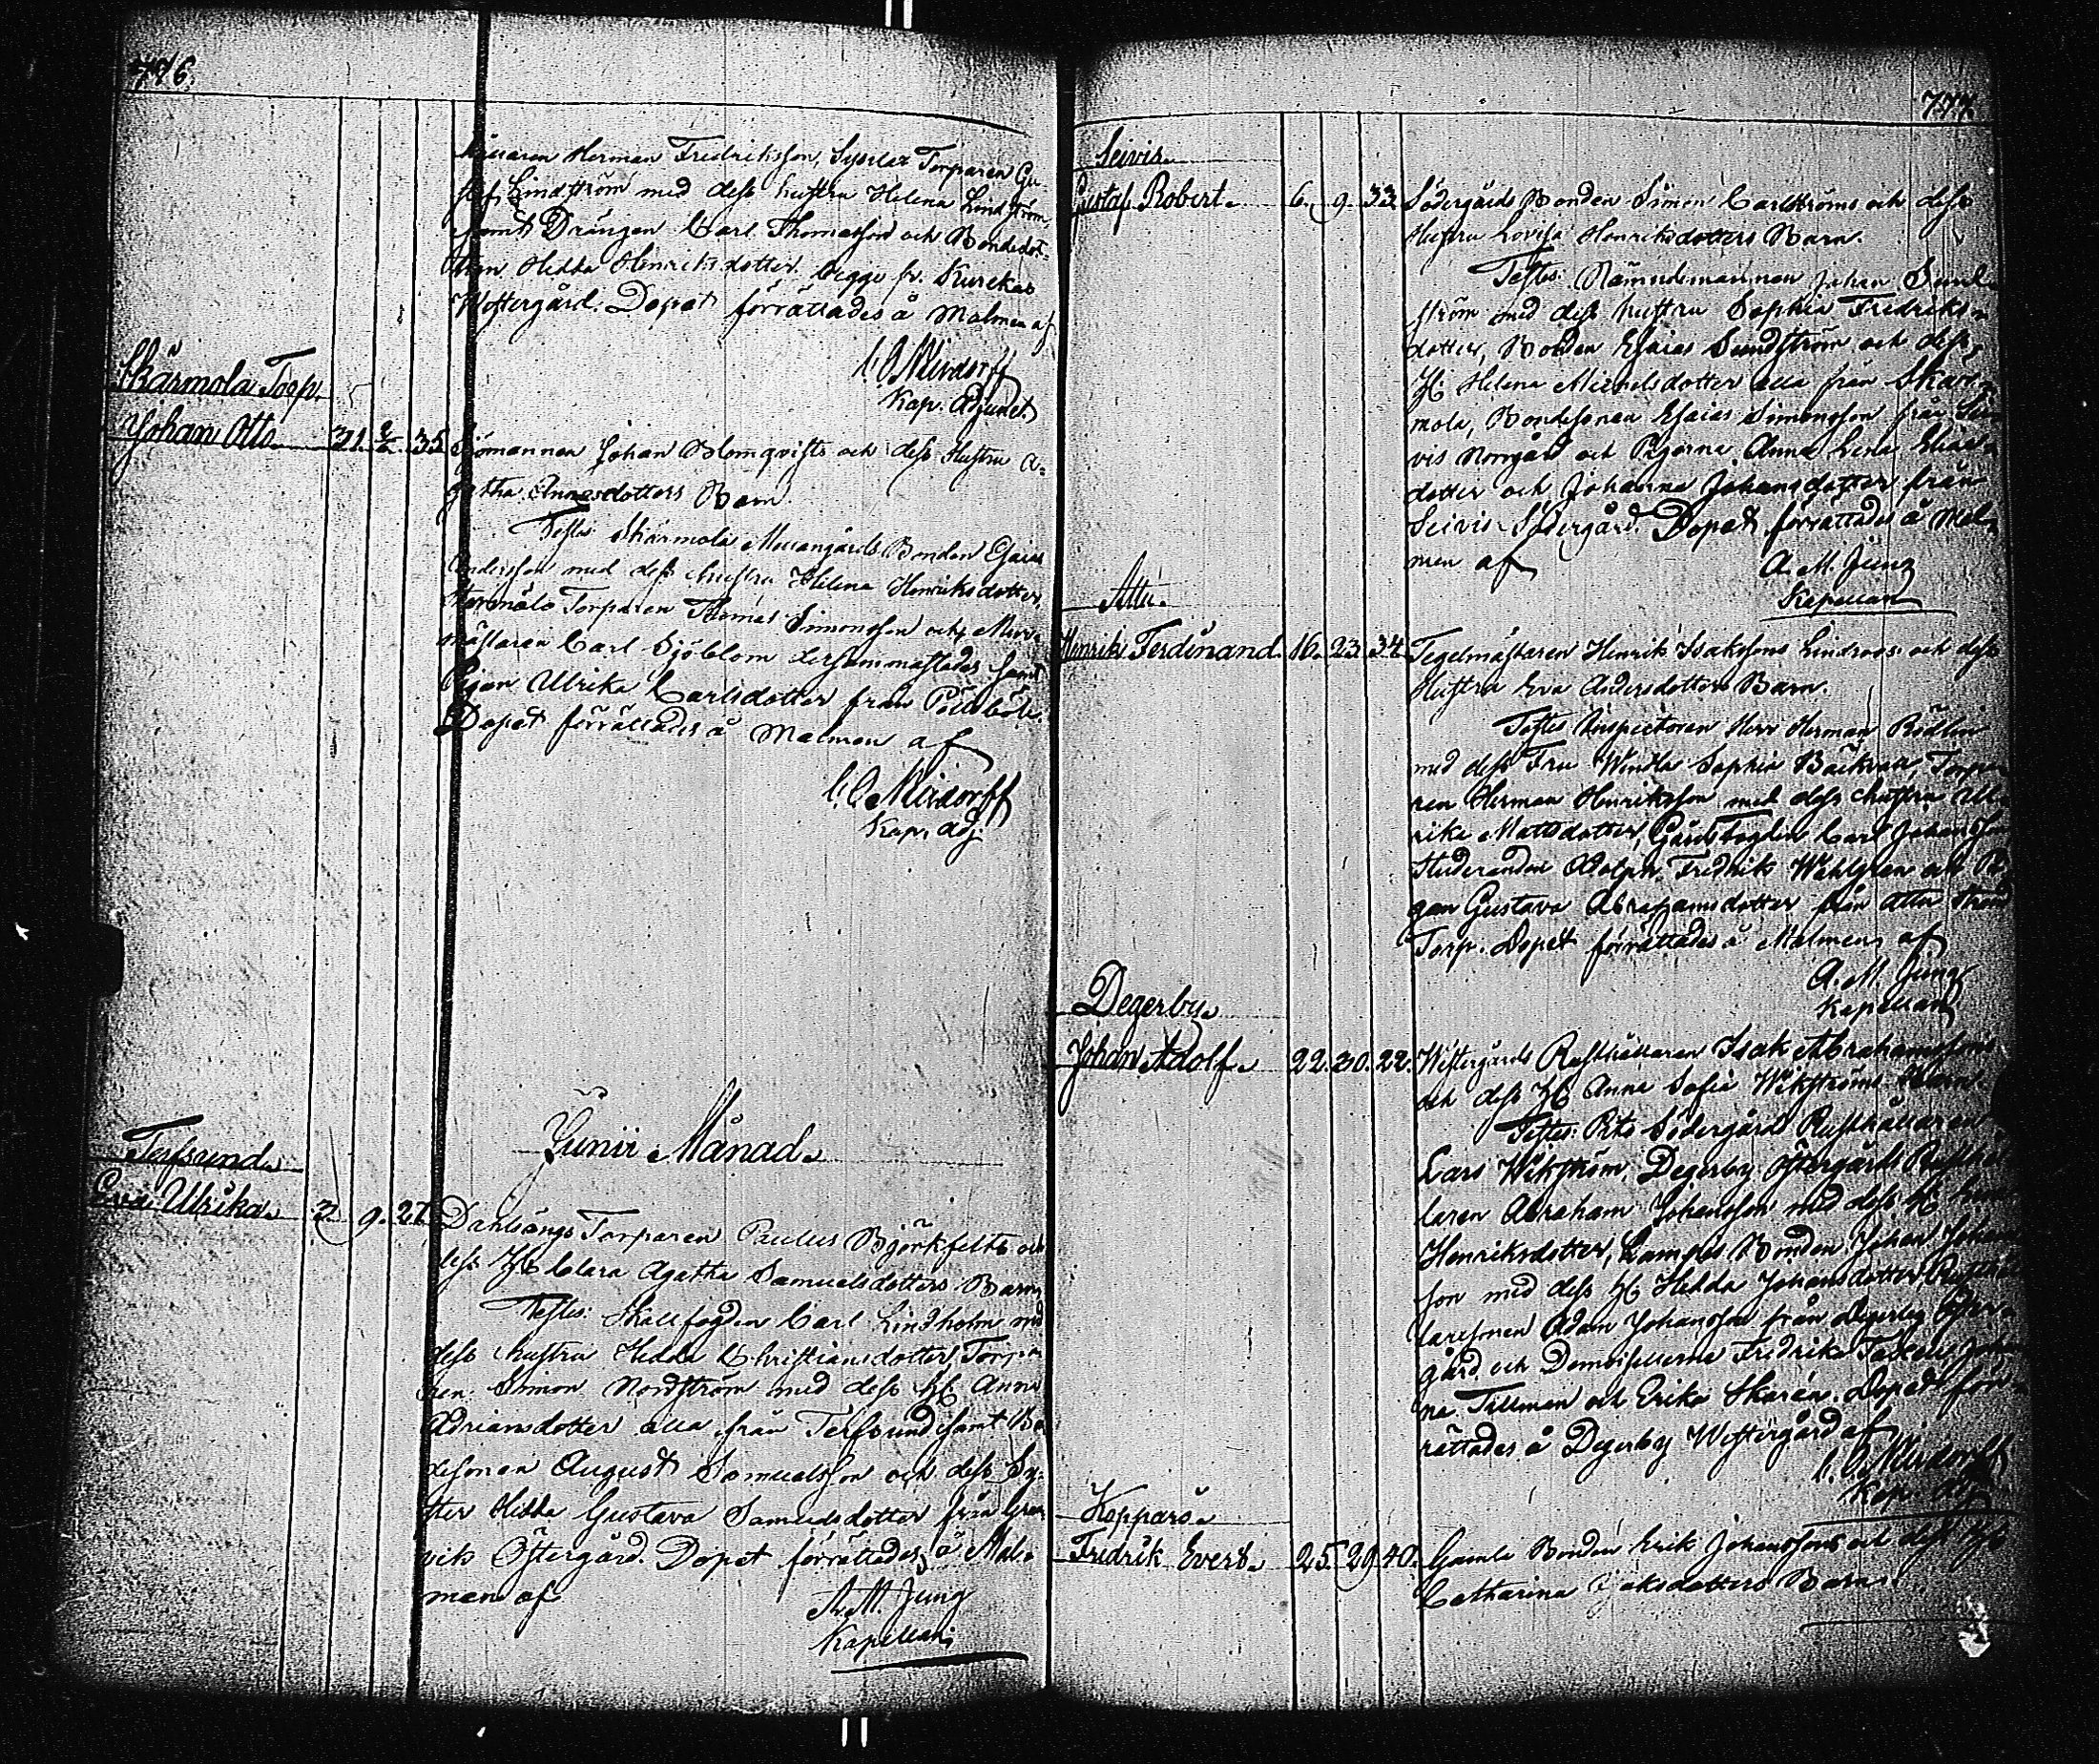 776.
Herman Fredriksson, Torparen Gu-
staf Lindström med dess hustru Helena Lindström,
samt Drängen Carl Thomasson och Bondedot-
Hedda Henriksdotter begge fr. Kurekas
Westergård. Dopet förrättades å Malmen af
Kap. Adjunct.
Skärmola Torp.
Johan Otto 31. 35. Sjömannen Johan Blomqvists och dess Hustru A-
gatha Barn.
Testes Skärmola Bonden Esaias
Andersson med dess hustru Helena Henriksdotter,
Torparen Thomas Simonsson och Mur-
mästaren Carl Sjöblom samt
Pigan Ulrika Carlsdotter från
Dopet förrättades å Malmen af
Kap. Adj.
Junii Månad.
Terfsund.
Eva Ulrika. 2. 9. 27. Torparen Paulus Björkfelts och
dess H. Clara Agatha Samuelsdotters Barn
Testes: Skallfogden Carl Lindholm med
dess hustru Hedda Christiansdotter, Torpa-
ren Simon Nordström med dess H. Anna
Adriansdotter alla från Terfsund samt Bon-
desonen August Samuelsson och dess Sy-
ster Hedda Gustava Samuelsdotter från
viks Östergård. Dopet förrättades å Mal-
men af
A. M. Jung
Kapellan.
777.
Seivis.
Gustaf Robert. 6. 9. 33. Södergårds Bonden Simon Carlströms och dess
Hustru Lovisa Henriksdotters Barn.
Testes: Nämndemannen Johan Sund-
ström med dess hustru Sophia Fredriks-
dotter, Bonden Esaias Sundström och dess
H. Helena Michelsdotter alla från Skär-
mola, Bondesonen Esaias Simonsson från Sei-
vis Norrgård och Pigorna Anna Lena
dotter och Johanna Johansdotter från
Seivis Södergård. Dopet förrättades å Mal-
men af
A. M. Jung
Kapellan
Attu.
Henrik Ferdinand. 16. 23. 34. Tegelmästaren Henrik Isakssons Lindroos och dess
Hustru Eva Andersdotters Barn.
Testes Inspectoren Herr Herman Rödlin
med dess Fru Wendla Sophia Torpa-
ren Herman Henriksson med dess hustru Ul-
rika Mattsdotter, Gårdsfogden Carl Johansson
Studeranden Adolph Fredrik Wahlgren och Pi-
gan Gustava Abrahamsdotter från Attu
Torp. Dopet förrättades å Malmen af
A. M. Jung
Kapellan
Degerby.
Johan Adolf. 22. 30. 22. Westergårds Rusthållaren Isak Abrahamssons
och dess H. Anna Sofia Wikströms Barn.
Testes: Södergårds Rusthållaren
Lars Wikström, Degerby Östergårds Rusthål-
laren Abraham Johansson med dess H.
Henriksdotter, Bonden Johan Johans-
son med dess H. Hedda Johansdotter, Rusthål-
laresonen Adam Johansson från Degerby Öster-
gård och Demoisellerna Fredrika Johan-
na Tillman och Erika Skarén. Dopet för-
rättades å Degerby Westergård af
Kap. Adj.
Kopparö.
Fredrik Evert. 25. 29. 40. Gamla Bonden Erik Johanssons och dess H.
Catharina Barn.